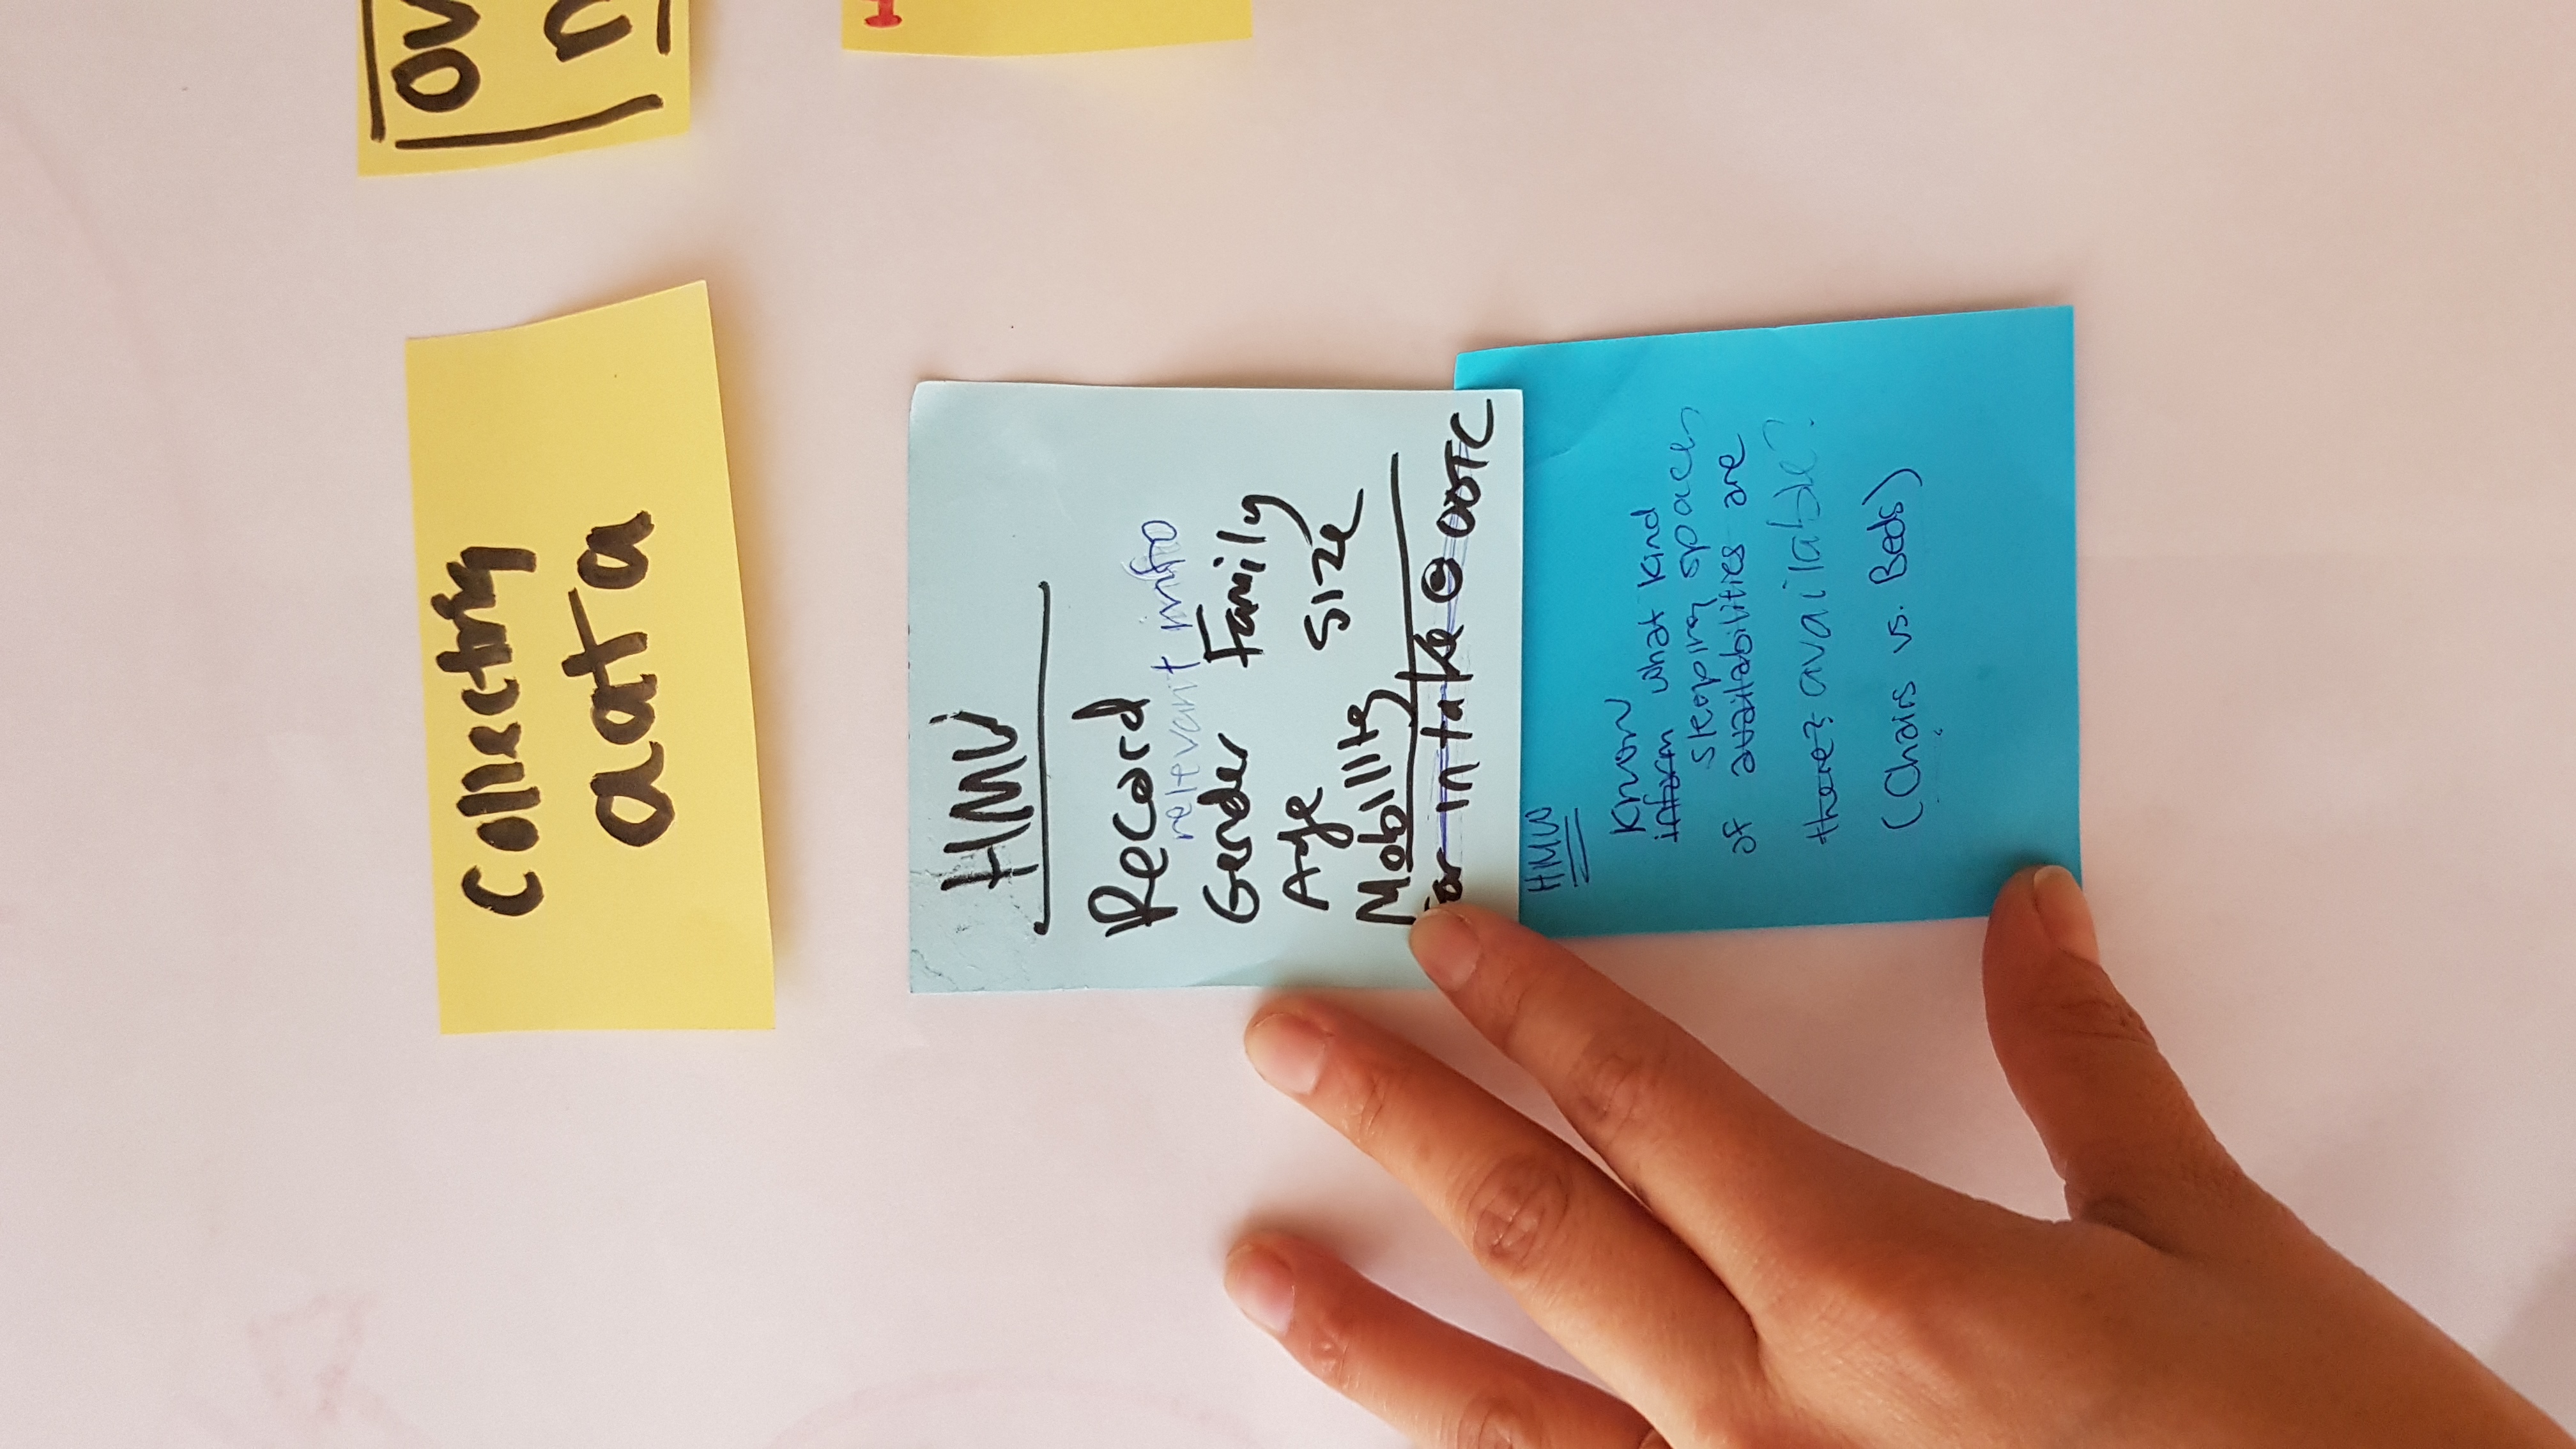 Collecting
data
HMW
Record
relevant info
Gender Family
Age Size
Mobility
For intake @ OOTC
HMW
Know
inform what kind
sleeping spaces
of availabilities are
there? available?
(Chairs vs. Beds)